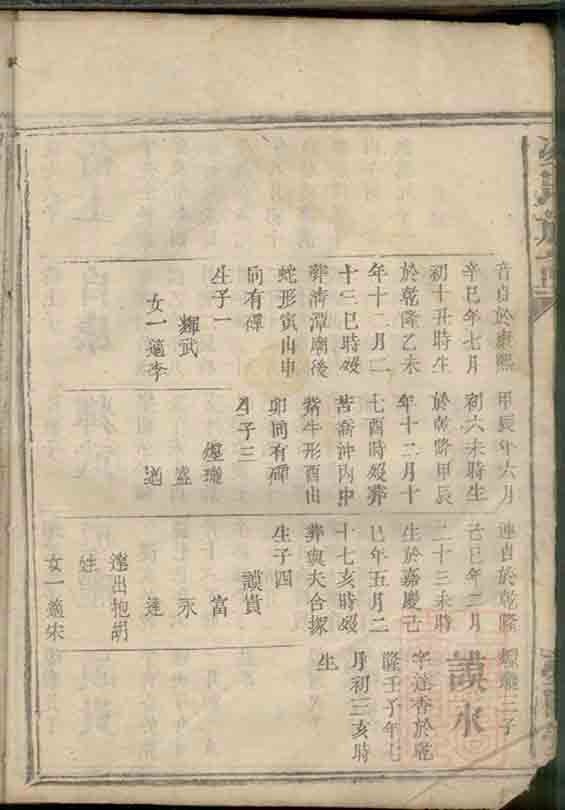 音貞於康熙
辛巳年七月
初十丑時生
於乾隆乙未
年十二月二
十三巳時歿
葬清潭廟後
蛇形寅山申
向有碑
生子一
輝武
女一適李
甲辰年六月
初六未時生
於乾隆甲辰
年十二月十
七酉時歿葬
苦喬沖內中
紫牛形酉山
卯向有碑
生子三
煌瓏
盛
適
連貞於乾隆
己巳年三月
二十三未時
生於嘉慶己
巳年五月二
十七亥時歿
葬與夫合塚
生子四
謨貴
富
永
達
達出抱胡
姓
女一適朱
煌瓏三子
謨永
字達香於乾
隆壬子年七
月初三亥時
生